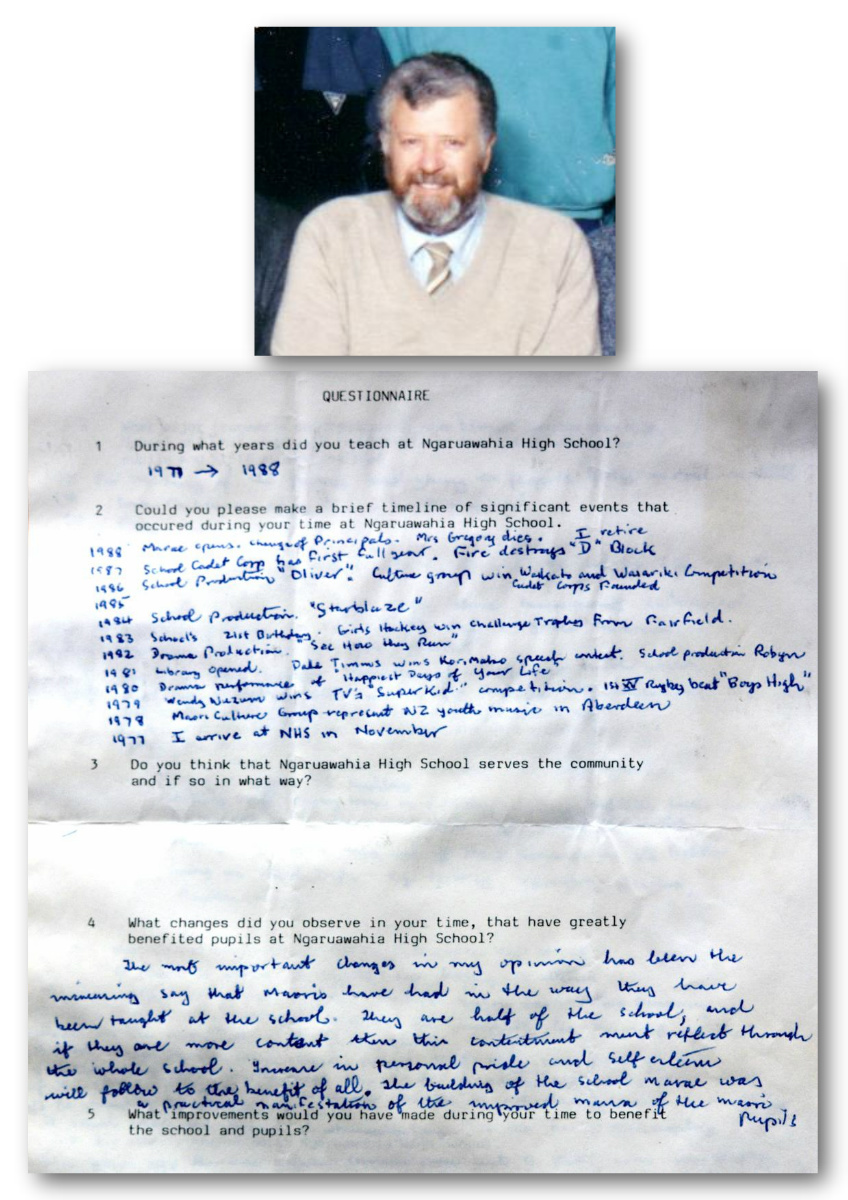 QUESTIONNAIRE
1 During what years did you teach at Ngaruawahia High School?
1977 → 1988
2 Could you please make a brief timeline of significant events that
occured during your time at Ngaruawahia High School.
1988 Marae opens. change of Principals. Mrs Gregory dies. I retire
1987 School Cadet Corp has First full year. Fire destroys "D" Block
1986 School Production "Oliver". Culture group win Waikato and Waiariki Competition
1985 Cadet Corps Founded
1984 School Production. "Starblaze"
1983 School's 21st Birthday. Girls Hockey win Challenge Trophy From Fairfield.
1982 Drama Production. "See How they Run"
1981 Library Opened. Dale Timms wins Korimako speech contest. School production Robyn
1980 Drama performance of "Happiest Days of Your Life"
1979 Wendy wins TV's "SuperKid" competition. 1st XV Rugby beat "Boys High"
1978 Maori Culture Group represent NZ youth music in Aberdeen
1977 I arrive at NHS in November
3 Do you think that Ngaruawahia High School serves the community
and if so in what way?
4 What changes did you observe in your time, that have greatly
benefited pupils at Ngaruawahia High School?
The most important changes in my opinion has been the
say that Maoris have had in the way they have
been taught at the school. They are half of the school, and
if they are more content then this contentment must reflect through
the whole school. Increase in personal pride and self esteem
will follow to the benefit of all. The building of the school marae was
a practical manifestation of the improved mana of the maori
pupils
5 What improvements would you have made during your time to benefit
the school and pupils?